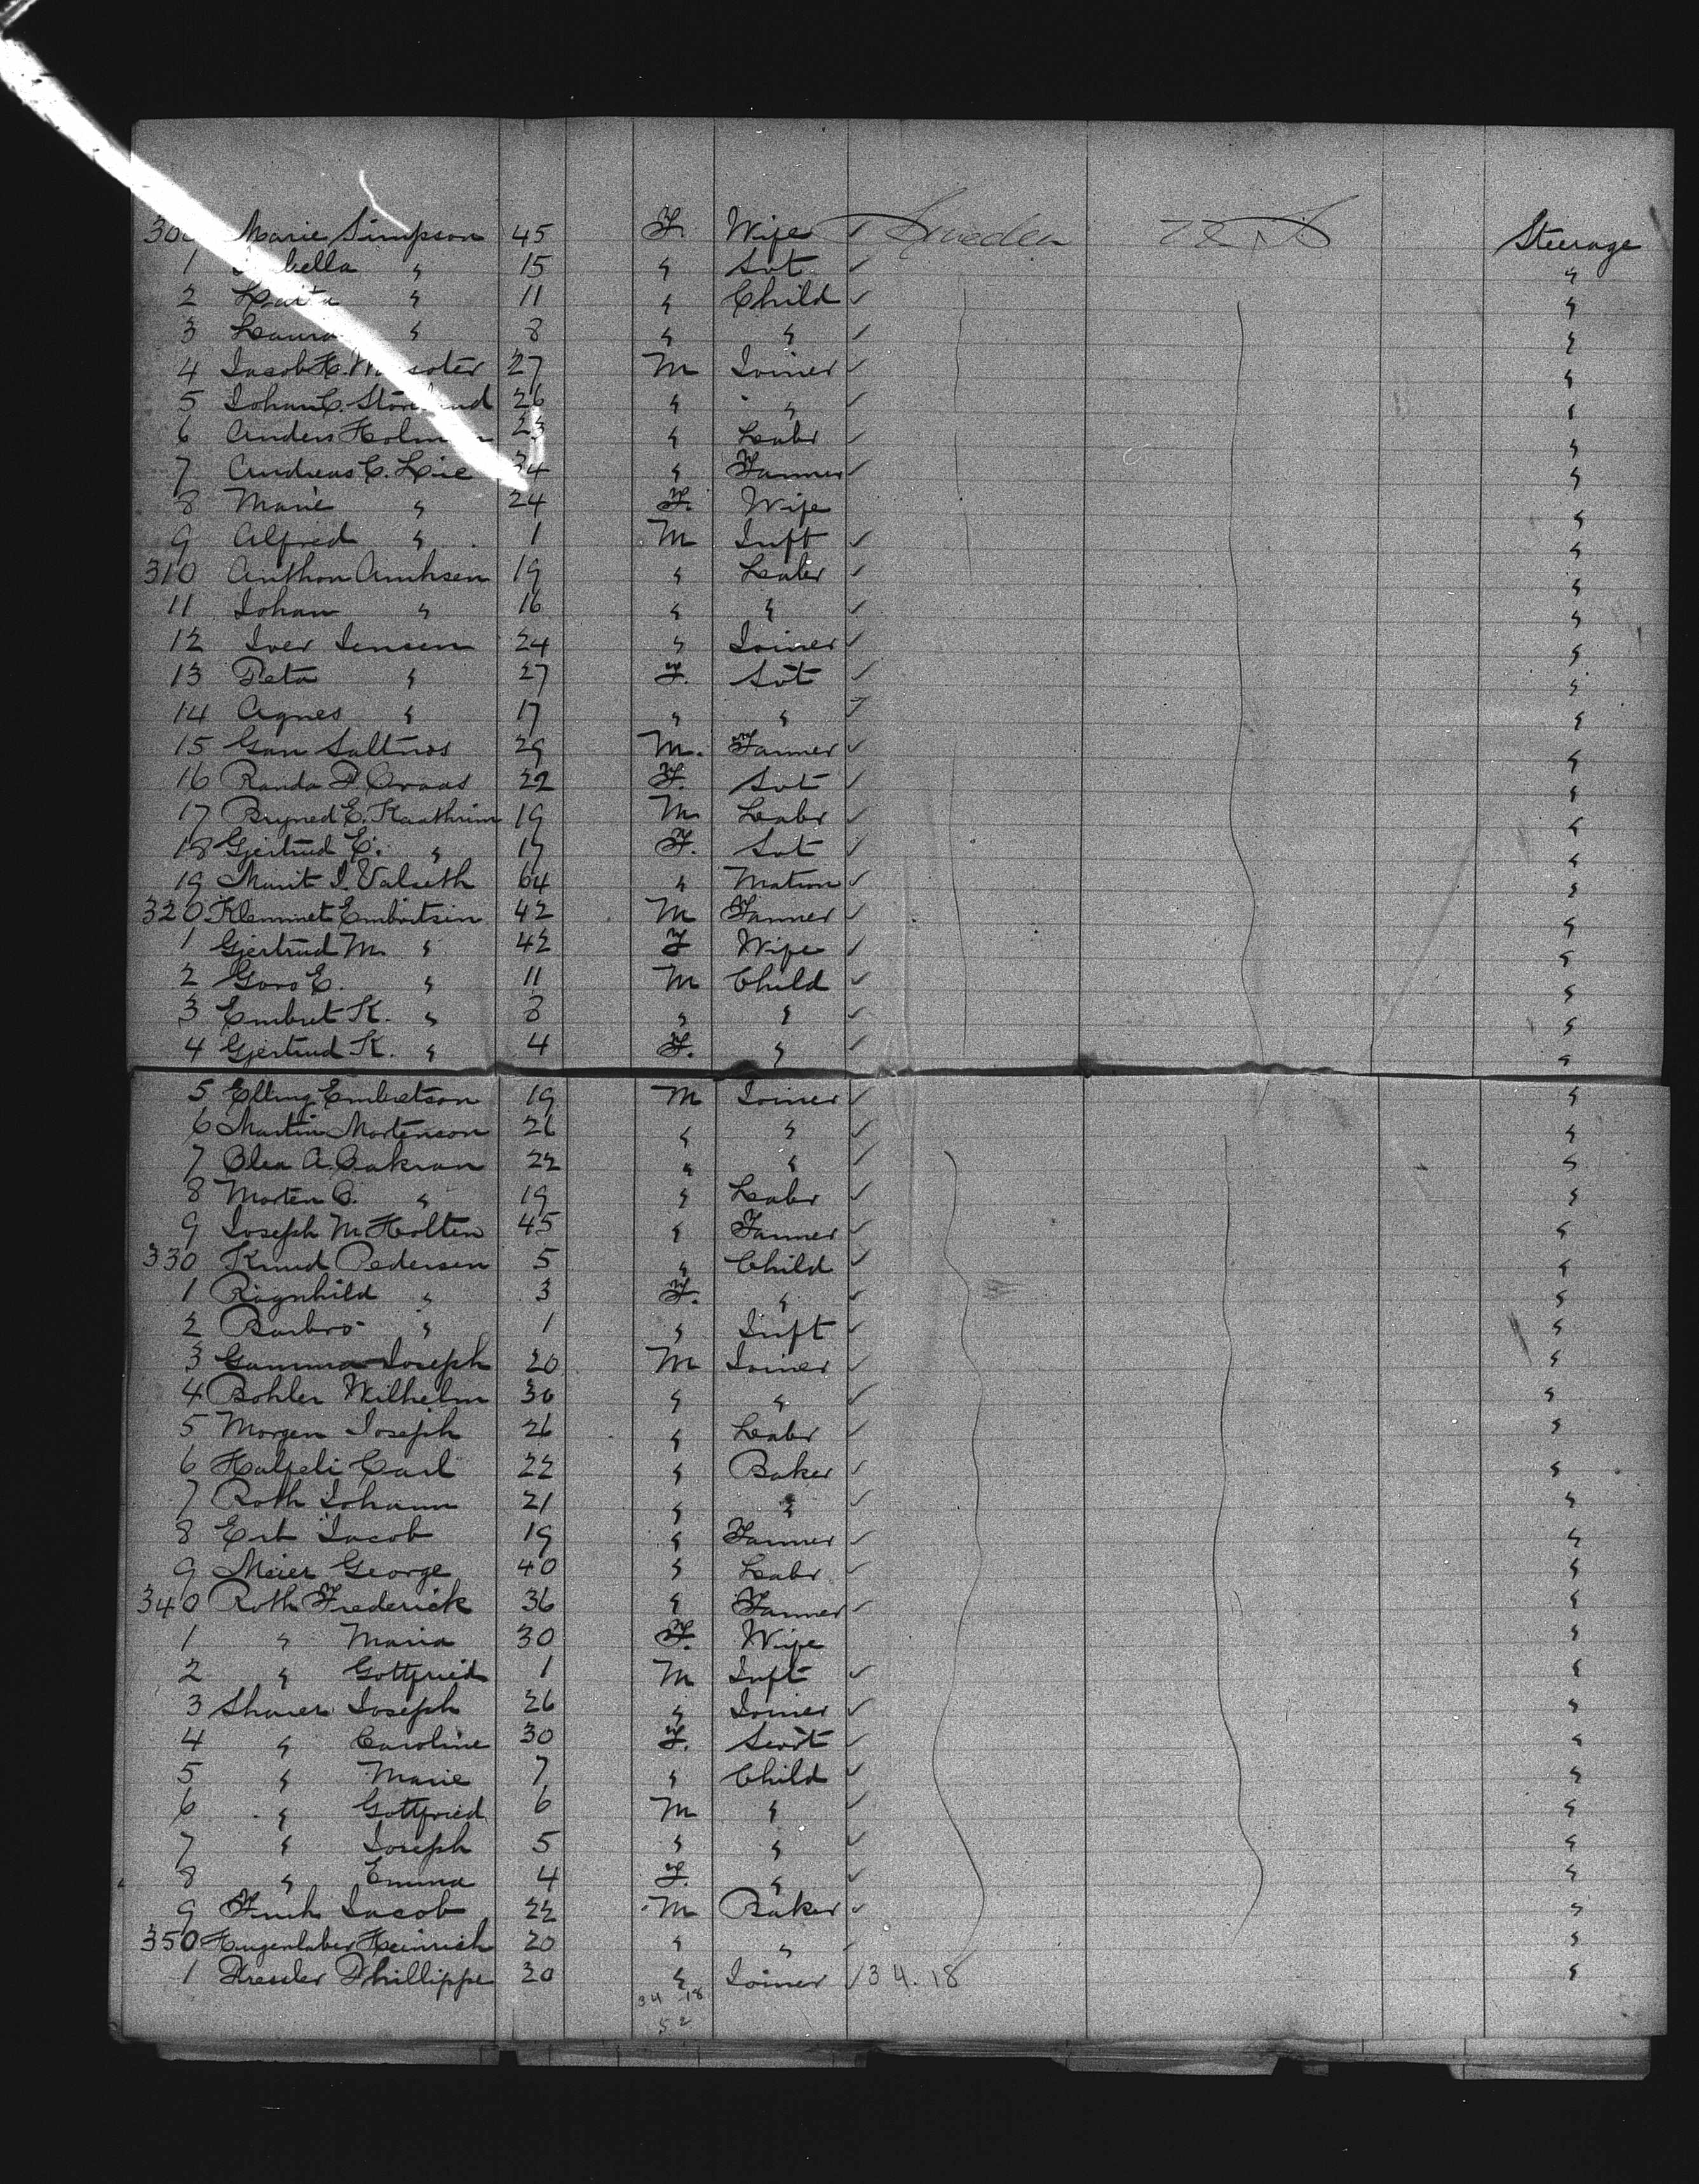 Marie Simpson 45 F. Wife Sweden Steerage
1 " 15 " Svt "
2 " 11 " Child "
3 Laura " 8 " " "
4 Jacob 27 M Joiner "
5 Johan C. 26 " " "
6 Anders 23 " Labr "
7 Andreas C. Lie 34 " Farmer "
8 Marie " 24 F. Wife "
9 Alfred " 1 M Inft "
310 Anthon 19 " Labr "
11 Johan " 16 " " "
12 Iver Jensen 24 " Joiner "
13 Peta " 27 F. Svt "
14 Agnes " 17 " " "
15 Gun Saltnos 29 M. Farmer "
16 Randa P 22 F. Svt "
17 Bryned E. 19 M Labr "
18 Gjertrud E. " 17 F. Svt "
19 Marit I. Valseth 64 " Matron "
320 Klemmet Embretsen 42 M Farmer "
1 Gjertrud M. " 42 F Wife "
2 Goro E. " 11 M Child "
3 Embret K. " 8 " " "
4 Gjertrud K. " 4 F. " "
5 Elling Embretson 19 M Joiner "
6 Martin Mortenson 26 " " "
7 Olea A. 22 " " "
8 Morten O. " 19 " Labr "
9 Joseph M Holten 45 " Farmer "
330 Knud Pedersen 5 " Child "
1 Ragnhild " 3 F. " "
2 Barbro " 1 " Inft "
3 Joseph 20 M Joiner "
4 Bohler Wilhelm 36 " " "
5 Morgen Joseph 26 " Labr "
6 Halfeli Carl 22 " Baker "
7 Roth Johann 21 " " "
8 Erb Jacob 19 " Farmer "
9 Meier George 40 " Labr "
340 Roth Frederick 36 " Farmer "
1 " Maria 30 F. Wife "
2 " Gottfried 1 M Inft "
3 Shaner Joseph 26 " Joiner "
4 " Caroline 30 F. Servt "
5 " Marie 7 " Child "
6 " Gottfried 6 M " "
7 " Joseph 5 " " "
8 " Emma 4 F. " "
9 Jacob 22 M Baker "
350 Heinrich 20 " " "
1 Phillippe 20 " Joiner 34.18 "
34 18
52